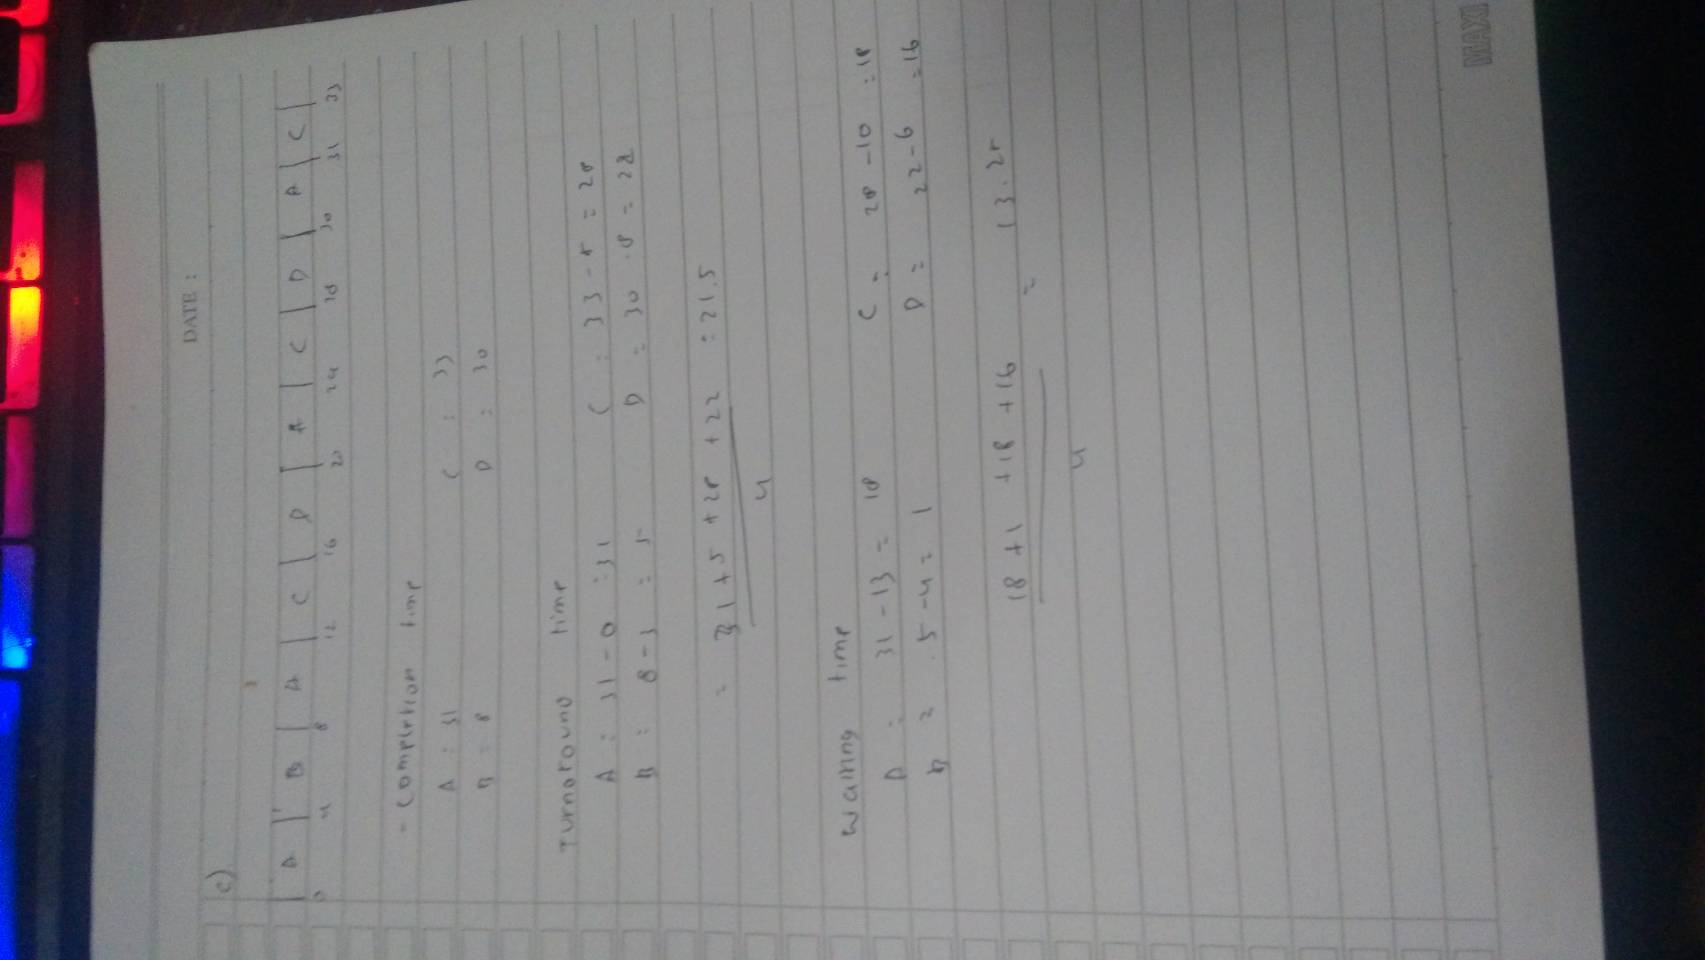 DATE :
c)
| A | B | A | C | D | A | C | D | A | C |
0 4 8 12 16 20 24 28 30 31 33
- Completion time
A : 31 C : 33
B : 8 D : 30
Turnaround time
A : 31 - 0 : 31 C : 33 - 5 = 28
B : 8 - 3 : 5 D : 30 - 8 = 22
= 31 + 5 + 28 + 22 : 21.5
4
Waiting time
A : 31 - 13 = 18 C : 28 - 10 : 18
B = 5 - 4 = 1 D = 22 - 6 = 16
18 + 1 + 18 + 16 = 13.25
4
MAXI